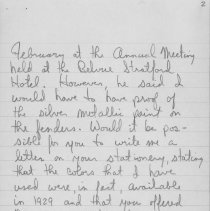 2
February at the Annual Meeting
held at the Belvue Stratford
Hotel. However, he said I
would have to have proof of
the silver metallic paint on
the fenders. Would it be pos-
sible for you to write me a
letter on your stationery, stating
that the colors that I have
used were, in fact, available
in 1929 and that you offered